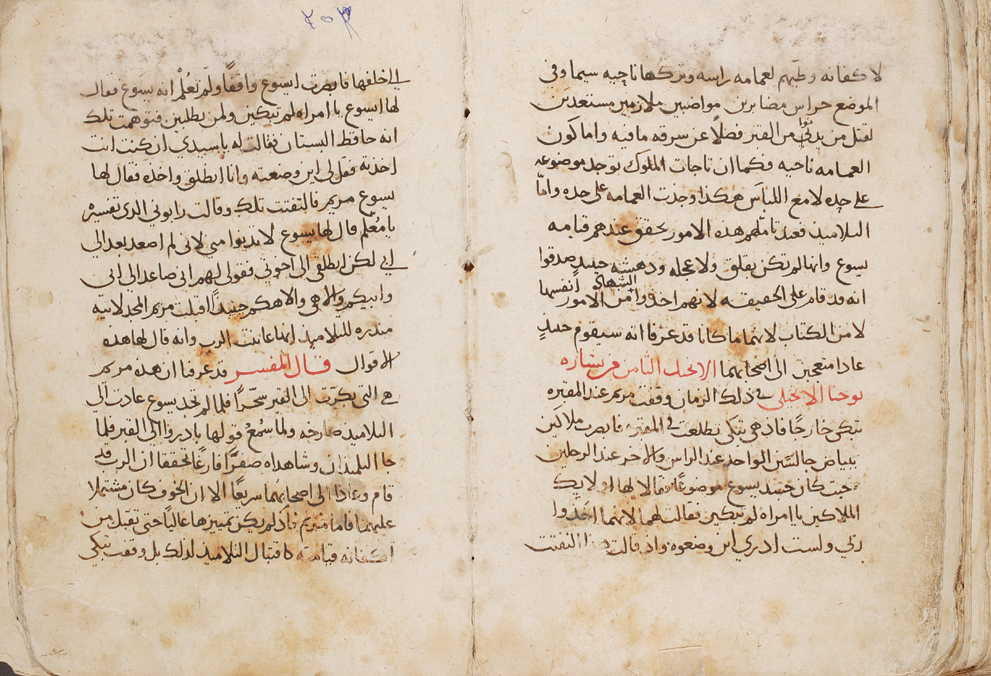 ٢٥٣
لاكفانه وطيهم لعمامه راسه وتركها ناحيه سيما وفي
الموضع حراس مضابرين مواضبين ملازمين مستعدين
لقتل من يدنوا من القبر فضلاً عن سرقه مافيه واما كون
العمامه ناحيه فكما ان تاجات الملوك توجد موضوعه
على حده لامع اللباس هكذا وجدت العمامه على حده واما
التلاميذ فعند تاملهم هذه الامور تحقق عندهم قيامه
يسوع وانها لم تكن بقلق ولا عجله ودهشه حينيذ صدقوا
انه قد قام على الحقيقه لانهم اخذوا الشهاده من الامور انفسها
لا من الكتاب لانهما ما كانا قد عرفا انه سيقوم حينيذ
عادا متعجبين الى اصحابهما الانجيل الثامن من بشاره
يوحنا الانجيلي في ذلك الزمان وقفت مريم عند المقبره
تبكي خارجًا فاذ هي تبكي تطلعت في المقبره فابصرت ملاكين
ببياض جالسين الواحد عند الراس والاخر عند الرجلين
حيث كان جسد يسوع موضوعًا فقالا لها اوليك
الملاكين يا امراه لم تبكين فقالت لهما لانهما اخذوا
ربي ولست ادري اين وضعوه واذ قالت هذا التفتت
الى خلفها فابصرت ايسوع واقفًا ولم تعلم انه يسوع فقال
لها ايسوع يا امراه لم تبكين ولمن تطلبين فتوهمت تلك
انه حافظ البستان فقالت له يا سيدي ان كنت انت
اخذته فقل لي اين وضعته وانا انطلق واخذه فقال لها
يسوع مريم فالتفتت تلك وقالت رابوني الذي تفسيره
يا معلم قال لها يسوع لا تدنوا مني لاني لم اصعد بعد الى
ابي لكن انطلقي الى اخوتي فقولي لهم اني صاعد الى ابي
وابيكم والاهي والاهكم حينيذًا اقبلت مريم المجدلانيه
منذره للتلاميذ انها عاينت الرب وانه قال لها هذه
الاقوال قال المفسر قد عرفنا ان هذه مريم
هي التي بكرت الى القبر سحرًا فلما لم تجد يسوع عادت الى
التلاميذ صارخه ولما سمع قولها بادروا الى القبر فلما
جا التلميذان وشاهداه صفرًا فارغًا تحققا ان الرب قد
قام وعادا الى اصحابهما سريعًا الا ان الخوف كان مشتملا
عليهما فاما مريم فاذ لم يكن تمييزها عاليًا حتى تقبل من
اكفانه قيامته كاقتبال التلاميذ لذلك بل وقفت تبكي